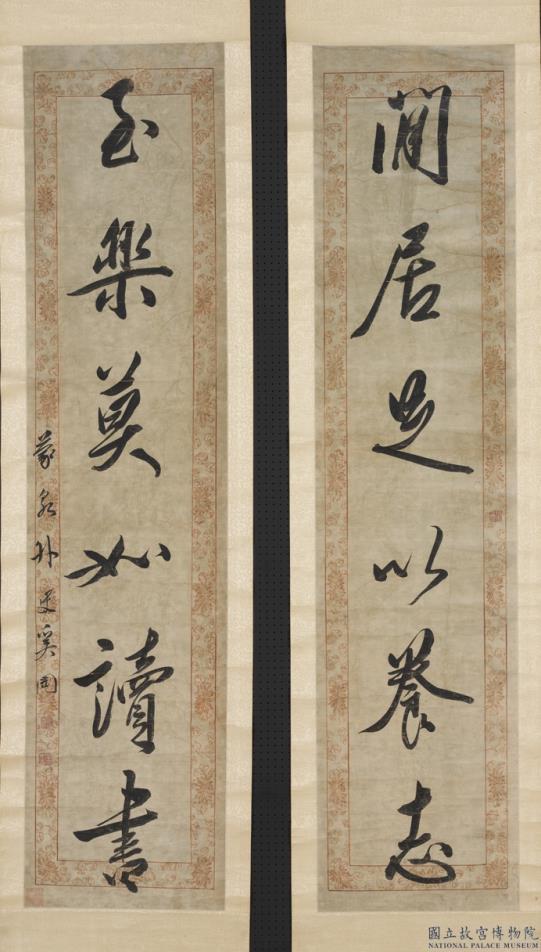 閒居足以養志
至樂莫如讀書
蒙泉外史奚岡
國立故宮博物院
NATIONAL PALACE MUSEUM